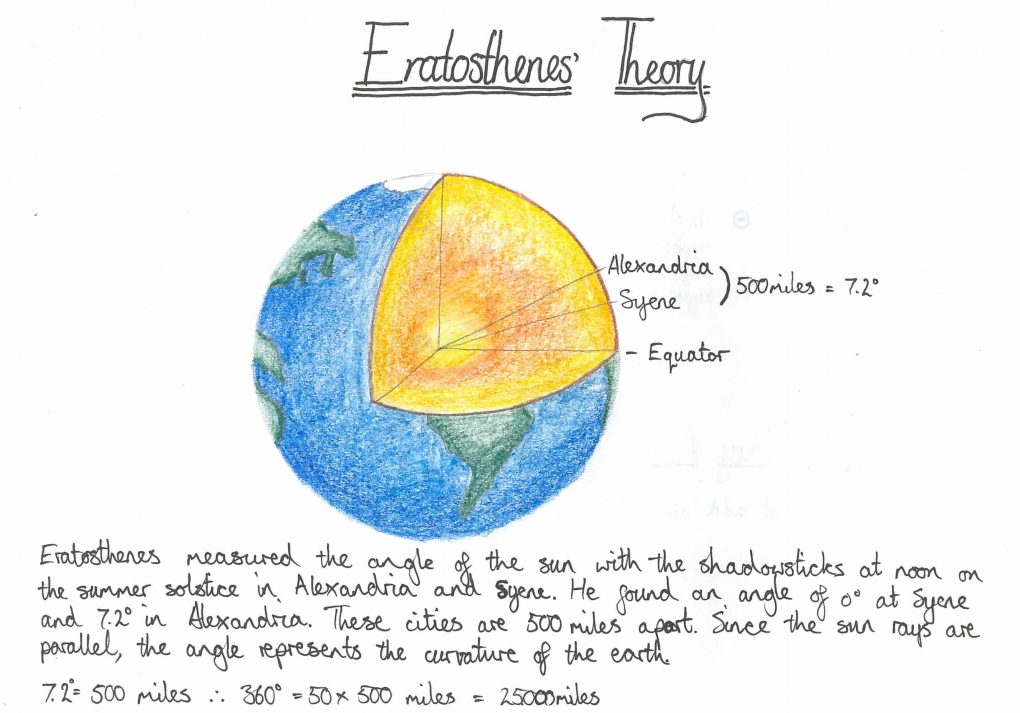 Eratosthenes' Theory
Alexandria
Syene
500 miles = 7.2°
- Equator
Eratosthenes measured the angle of the sun with the shadowsticks at noon on
the summer solstice in Alexandria and Syene. He found an angle of 0° at Syene
and 7.2° in Alexandria. These cities are 500 miles apart. Since the sun rays are
parallel, the angle represents the curvature of the earth.
7.2° = 500 miles ∴ 360° = 50 × 500 miles = 25000 miles